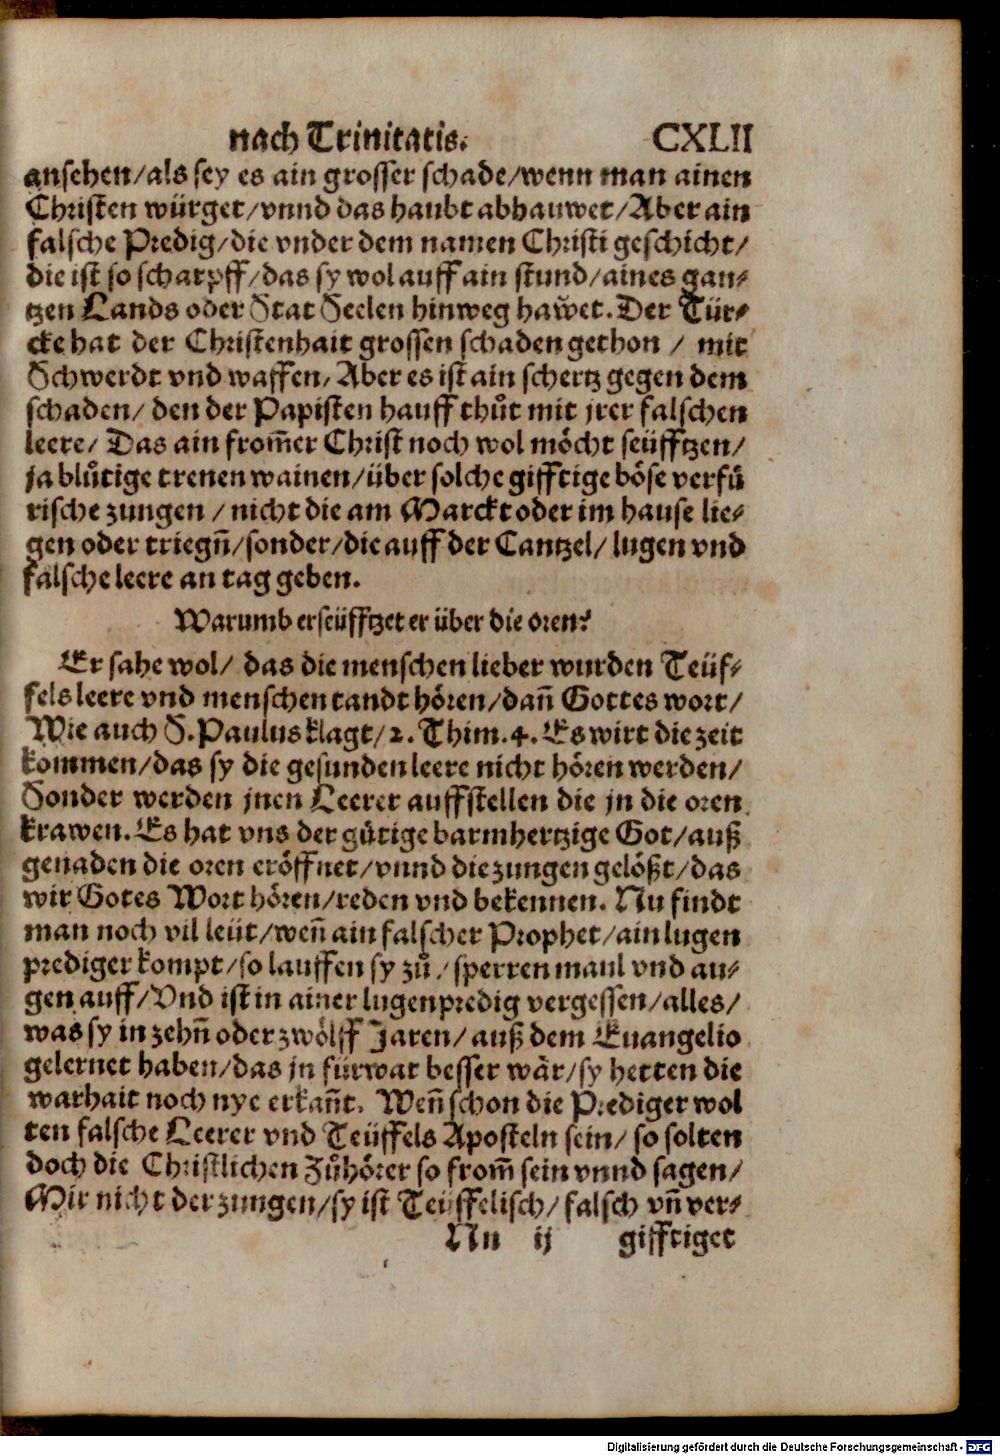 nach Trinitatis. CXLII
ansehen/als sey es ain grosser schade/wenn man ainen
Christen würget/vnnd das haubt abhauwet/Aber ain
falsche Predig/die vnder dem namen Christi geschicht/
die ist so scharpff/das sy wol auff ain stund/aines gan-
tzen Lands oder Stat Seelen hinweg haw̃et. Der Tür-
cke hat der Christenhait grossen schaden gethon / mit
Schwerdt vnd waffen/ Aber es ist ain schertz gegen dem
schaden/ den der Papisten hauff thůt mit jrer falschen
leere/ Das ain from̃er Christ noch wol möcht seüfftzen/
ja blůtige trenen wainen/über solche gifftige böse verfů
rische zungen / nicht die am Marckt oder im hause lie-
gen oder triegñ/sonder/die auff der Cantzel/ lugen vnd
falsche leere an tag geben.
Warumb erseüfftzet er über die oren?
Er sahe wol/ das die menschen lieber wurden Teüf-
fels leere vnd menschen tandt hören/dañ Gottes wort/
Wie auch S. Paulus klagt/2. Thim. 4. Es wirt die zeit
kommen/das sy die gesunden leere nicht hören werden/
Sonder werden jnen Leerer auffstellen die jn die oren
krawen. Es hat vns der gůtige barmhertzige Got/auß
genaden die oren eröffnet/vnnd die zungen gelößt/das
wir Gotes Wort hören/reden vnd bekennen. Nu findt
man noch vil leüt/weñ ain falscher Prophet/ain lugen
prediger kompt/so lauffen sy zů/sperren maul vnd au-
gen auff/Vnd ist in ainer lugenpredig vergessen/alles/
was sy in zehñ oder zwölff Jaren/ auß dem Euangelio
gelernet haben/das jn fürwar besser wår/sy hetten die
warhait noch nye erkañt. Weñ schon die Prediger wol
ten falsche Leerer vnd Teüffels Aposteln sein/ so solten
doch die Christlichen Zůhörer so from̃ sein vnnd sagen/
Mir nicht der zungen/sy ist Teüffelisch/ falsch vñ ver-
Nn ij gifftiget
Digitalisierung gefördert durch die Deutsche Forschungsgemeinschaft - DFG